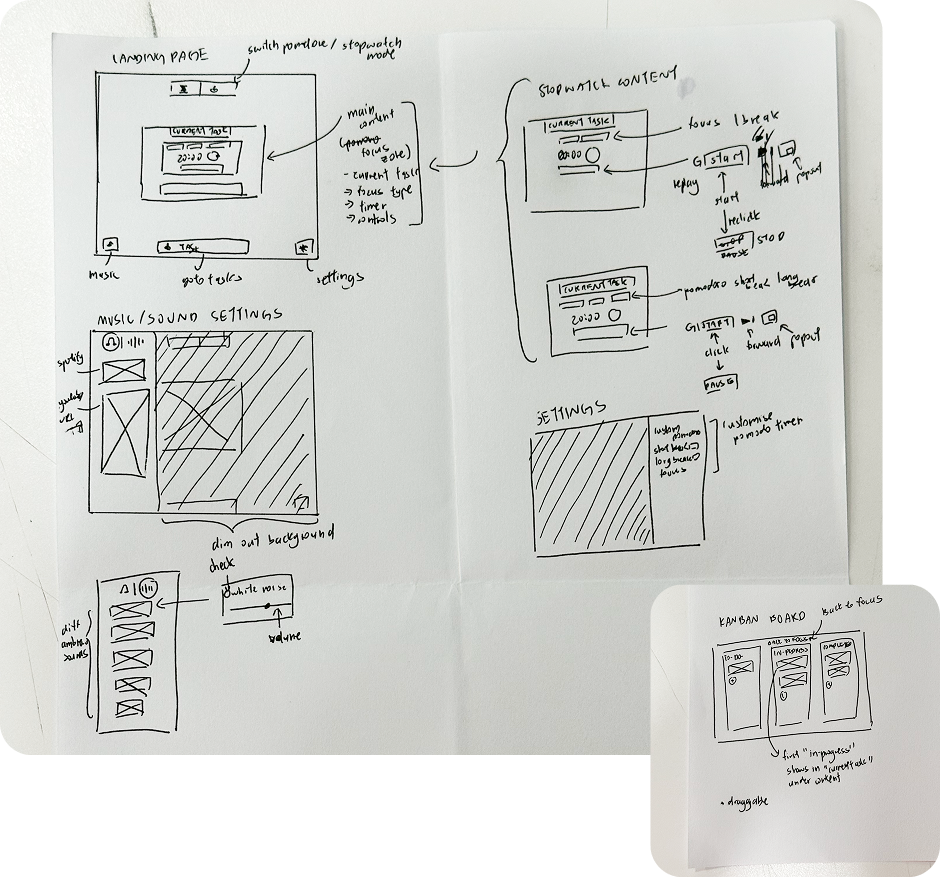 LANDING PAGE
switch pomodoro / stopwatch
mode
CURRENT TASK
20:00
TASK
music
goto tasks
settings
main
content
focus
zone)
- current task
→ focus type
→ timer
→ controls
STOPWATCH CONTENT
CURRENT TASK
00:00
focus / break
start
replay
forward
popout
start
reclick
STOP
CURRENT TASK
20:00
pomodoro short break long
START
forward
popout
click
PAUSE
MUSIC / SOUND SETTINGS
spotify
youtube
URL
dim out background
check
white noise
volume
diff
sounds
SETTINGS
custom
pomodoro
short break
long break
focus
customise
pomodoro timer
KANBAN BOARD
back to focus
BACK TO FOCUS
TO-DO
IN-PROGRESS
COMPLETED
first "in-progress"
shows in "current task"
under content
• draggable